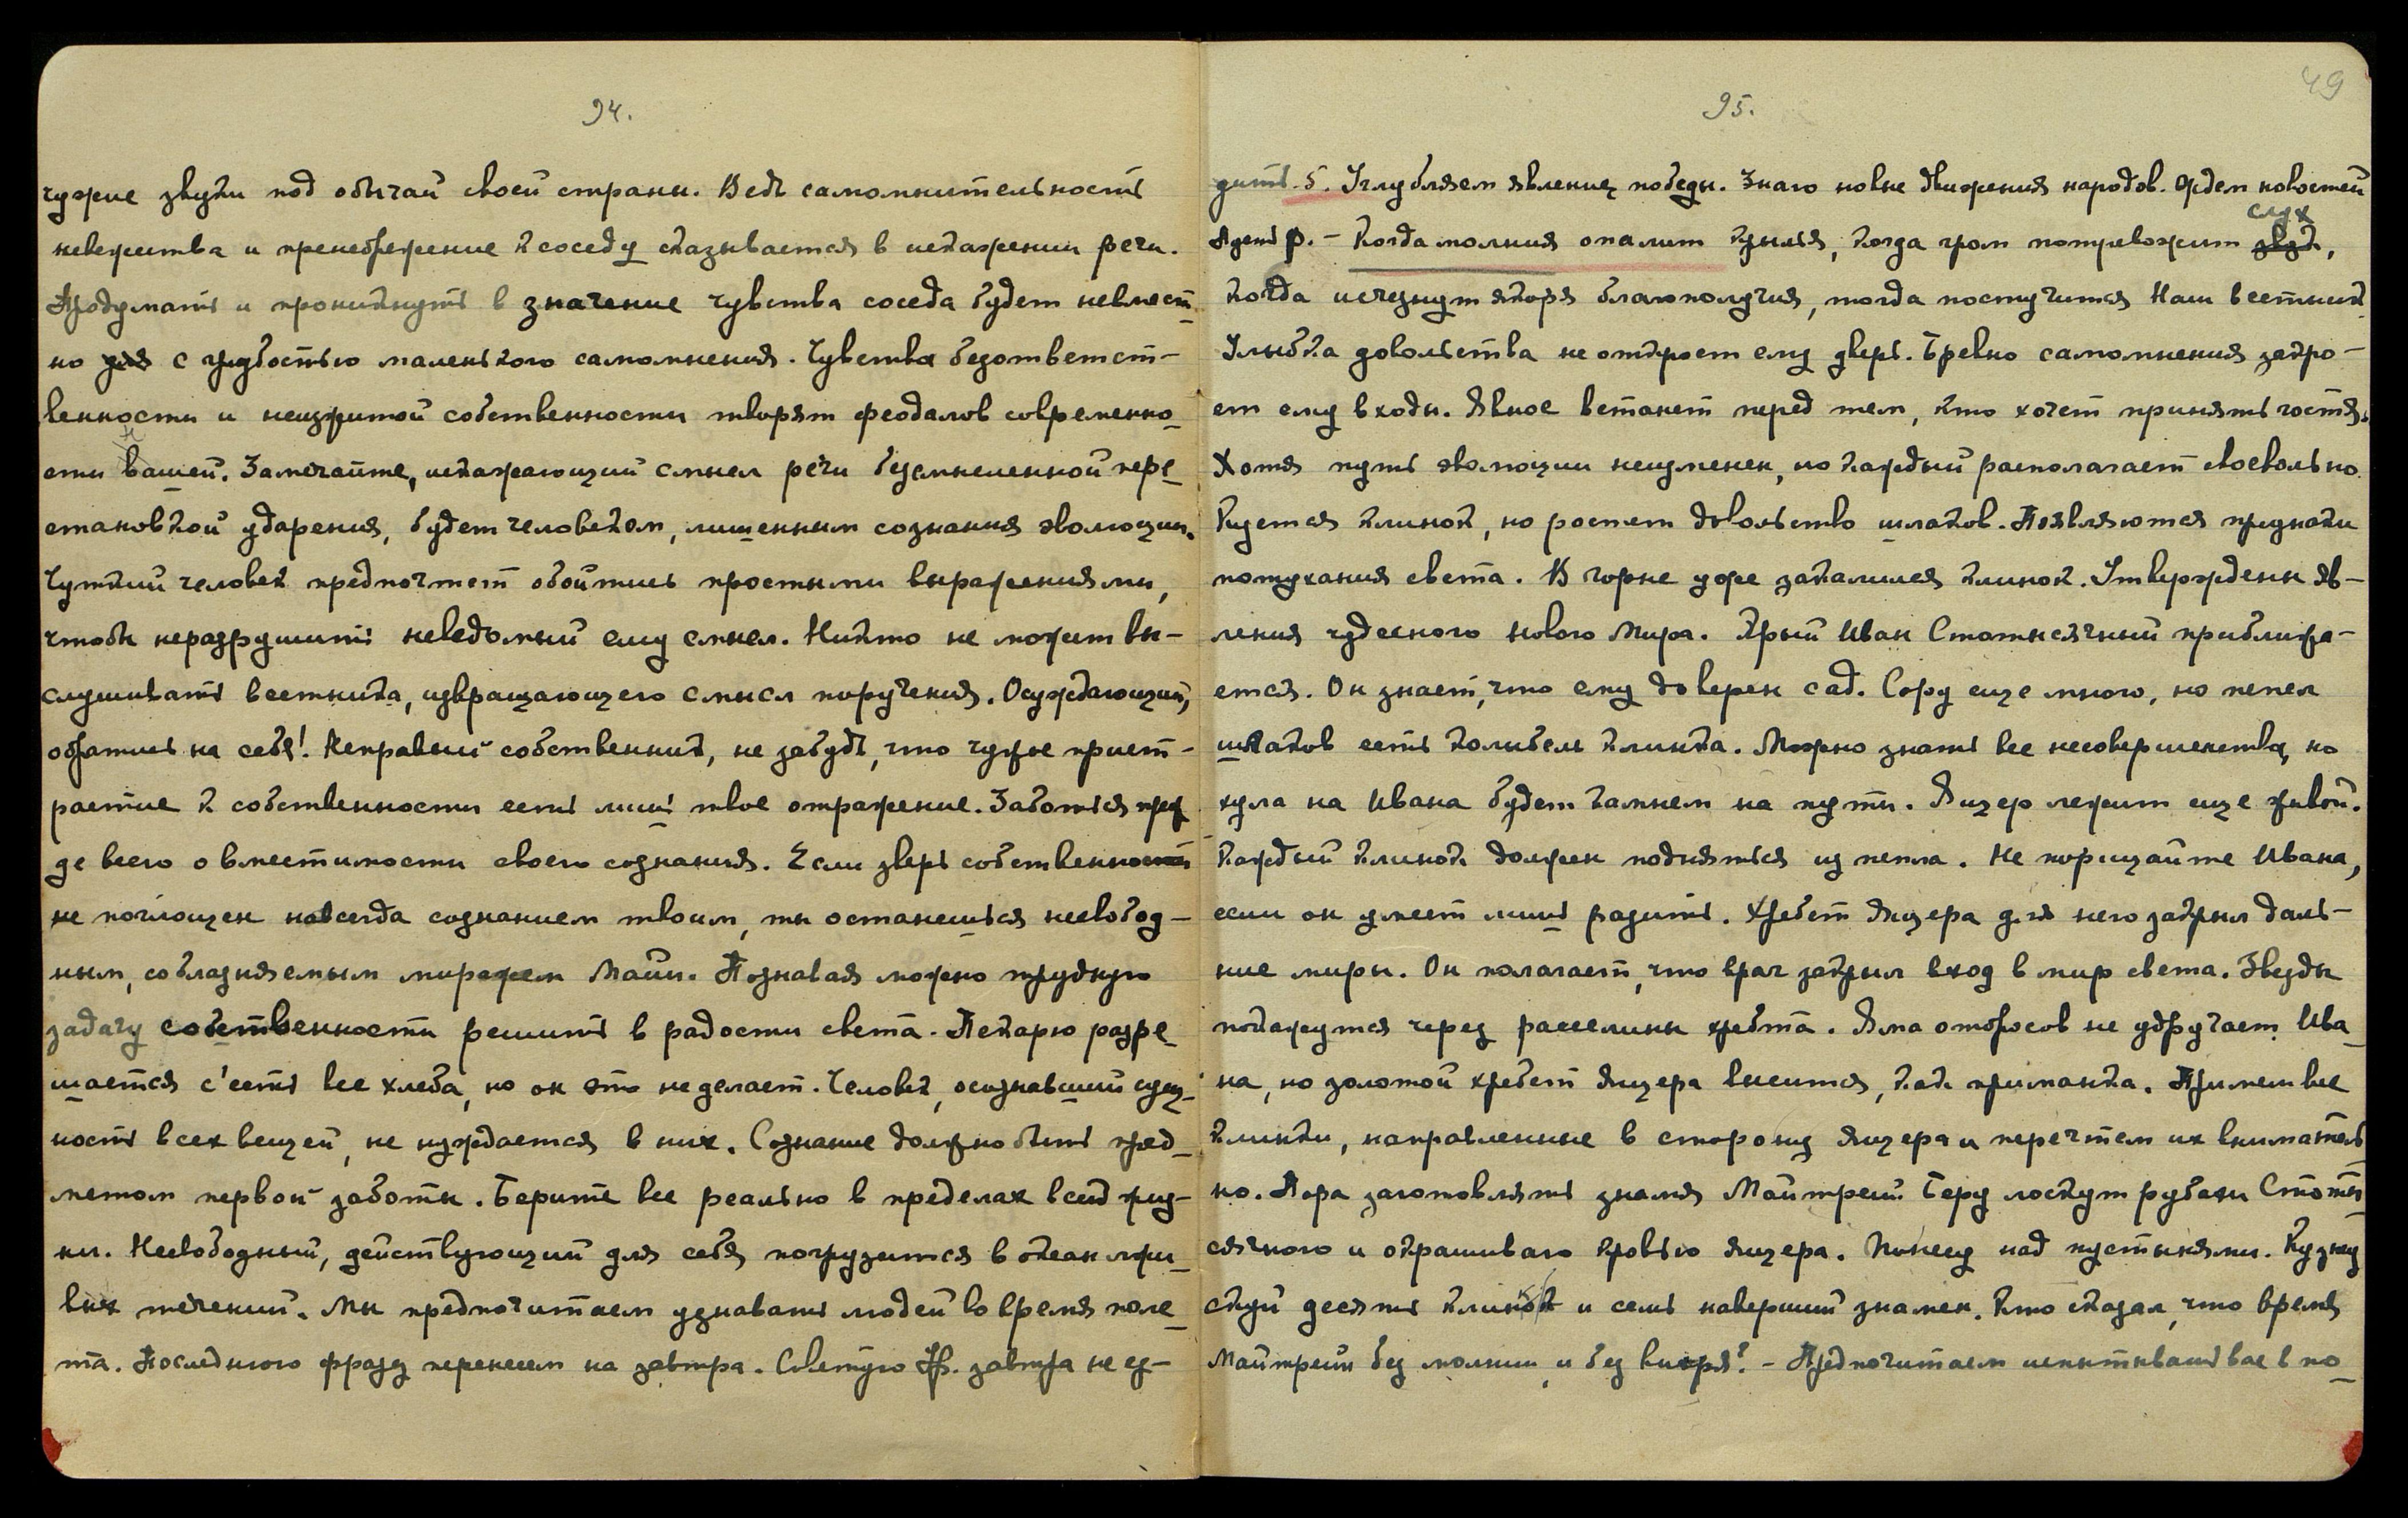 94.
чужие звуки под обычай своей страны. Ведь самомнительность
невежества и пренебрежение к соседу сказывается в искажении речи.
Продумать и проникнуть в значение чувства соседа будет невмест_
но с грубостью маленького самомнения. Чувства безответст-
венности и неизжитой собственности творят феодалов современно_
сти вашей. Замечайте, искажающий смысл речи бессмысленной пере_
становкой ударения, будет человеком, лишенным сознания эволюции.
Чуткий человек предпочтет обойтись простыми выражениями,
чтобы неразрушить неведомый ему смысл. Никто не может вы-
слушивать вестника, извращающего смысл поручения. Осуждающий,
обратись на себя! Неправый собственник, не забудь, что чужое прист-
растие к собственности есть лишь твое отражение. Заботься преж
де всего о вместимости своего сознания. Если зверь собственности
не поглощен навсегда сознанием твоим, ты останешься несвобод-
ным, соблазняемым миражем Майи. Познавая можно трудную
задачу собственности решить в радости света. Пекарю разре_
шается с'есть все хлеба, но он это не делает. Человек, осознавший сущ_
ность всех вещей, не нуждается в них. Сознание должно быть пред_
метом первой заботы. Берите все реально в пределах всей физ-
ки. Несвободный, действующий для себя погрузится в океан лжи_
вых течений. Мы предпочитаем узнавать людей во время поле_
та. Последнюю фразу перенесем на завтра. Советую Яр. завтра не ез-
49
95.
дить. 5. Углубляем явление победы. Знаю новые движения народов. Ждем новостей
Адент р. – Когда молния опалит крылья, когда гром потревожит слух,
когда исчезнут якоря благополучия, тогда постучится Наш вестник.
Улыбка довольства не откроет ему дверь. Бревно самомнения закро-
ет ему входы. Явное встанет перед тем, кто хочет принять гостя.
Хотя путь эволюции неизменен, но каждый располагает своевольно.
Куется клинок, но растет довольство шлаков. Появляются признаки
потухания света. В горне уже закалился клинок. Утверждены яв-
ления чудесного Нового Мира. Ярый Иван Стотысячный приближа-
ется. Он знает, что ему доверен сад. Сору еще много, но пепел
шлаков есть колыбель клинка. Можно знать все несовершенства, но
хула на Ивана будет камнем на пути. Ящер лежит еще живой.
Каждый клинок должен подняться из пепла. Не порицайте Ивана,
если он умеет лишь разить. Хребет ящера для него закрыл даль-
ние миры. Он полагает, что враг закрыл вход в мир света. Звезды
покажутся через расселины хребта. Яма отбросов не удручает Ива_
на, но золотой хребет ящера высится, как приманка. Примем все
клинки, направленные в сторону ящера и перечтем их вниматель
но. Пора заготовлять знамя Майтрейи. Беру лоскут рубахи Стоты
сячного и окрашиваю кровью ящера. Понесу над пустынями. Кузнец,
скуй десять клинок и семь наверший знамен. Кто сказал, что время
Майтрейи без молнии и без вихря? – Предпочитаем испытывать вас в по_